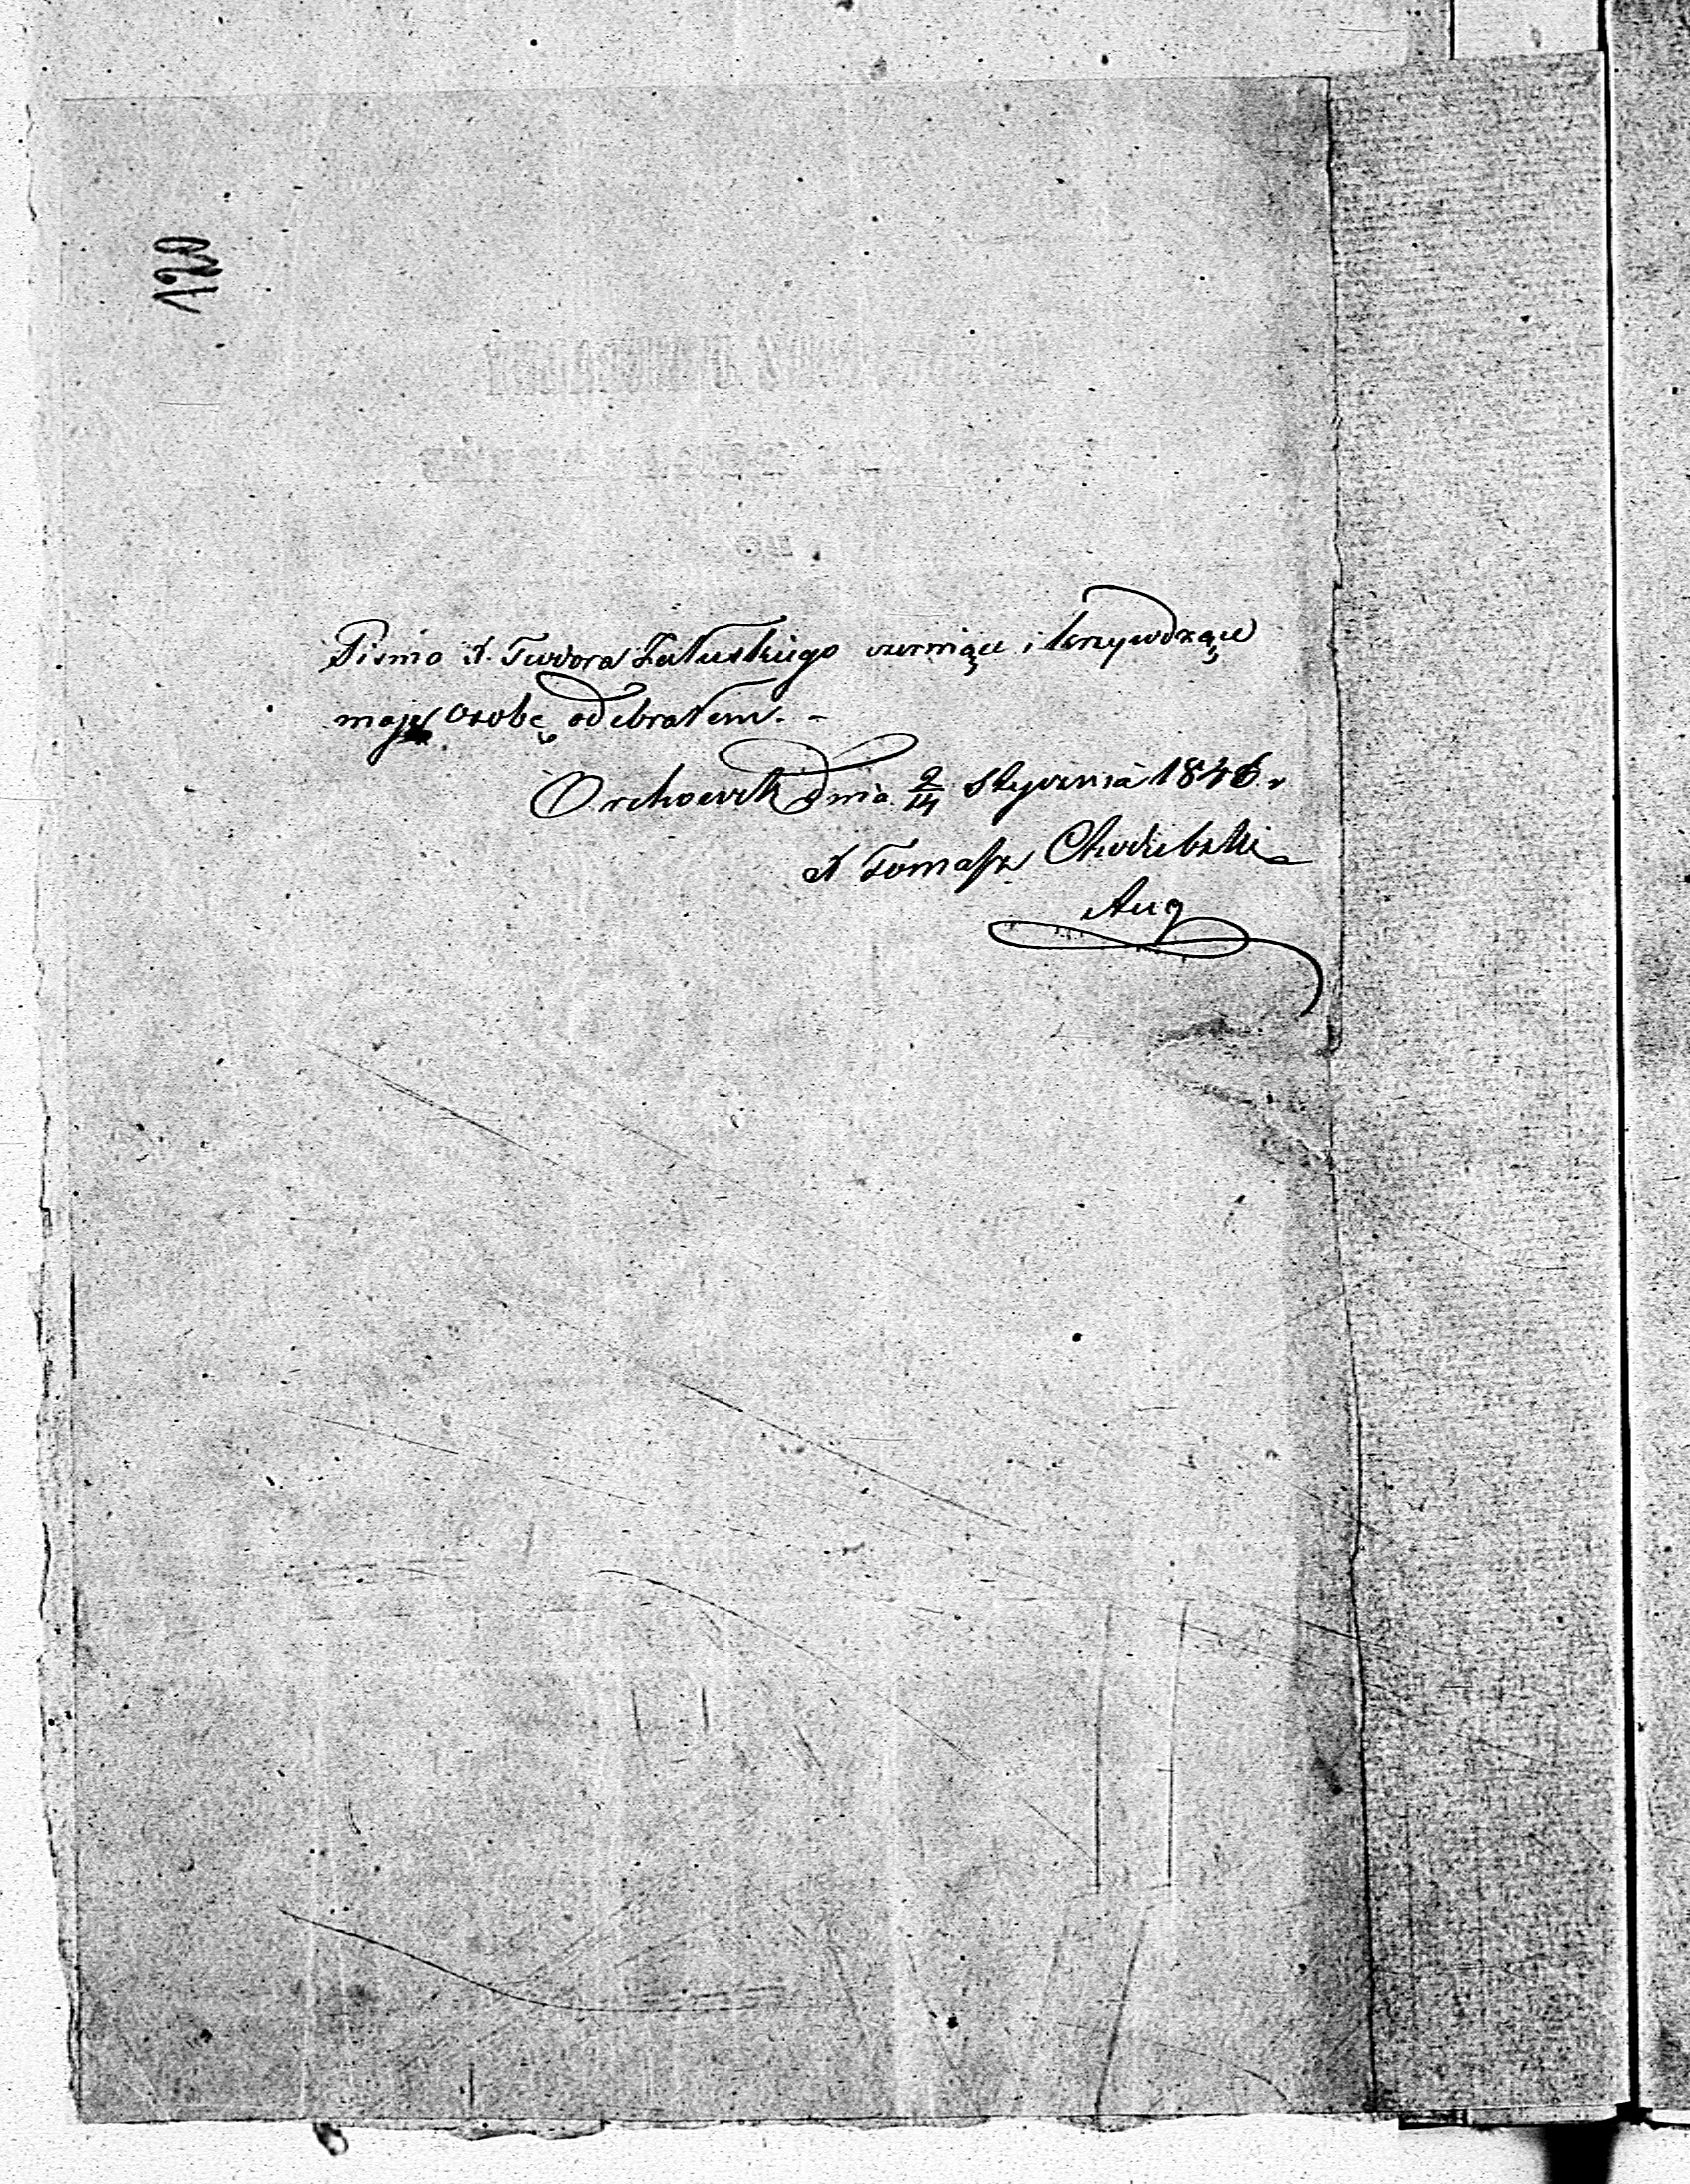 120
Pismo X. Teodora Załuskiego czerniące i krzywdzące
moję osobę odebrałem. -
Orchowek dnia 2/14 Stycznia 1846. r
X Tomasz Chodźibski
Aug